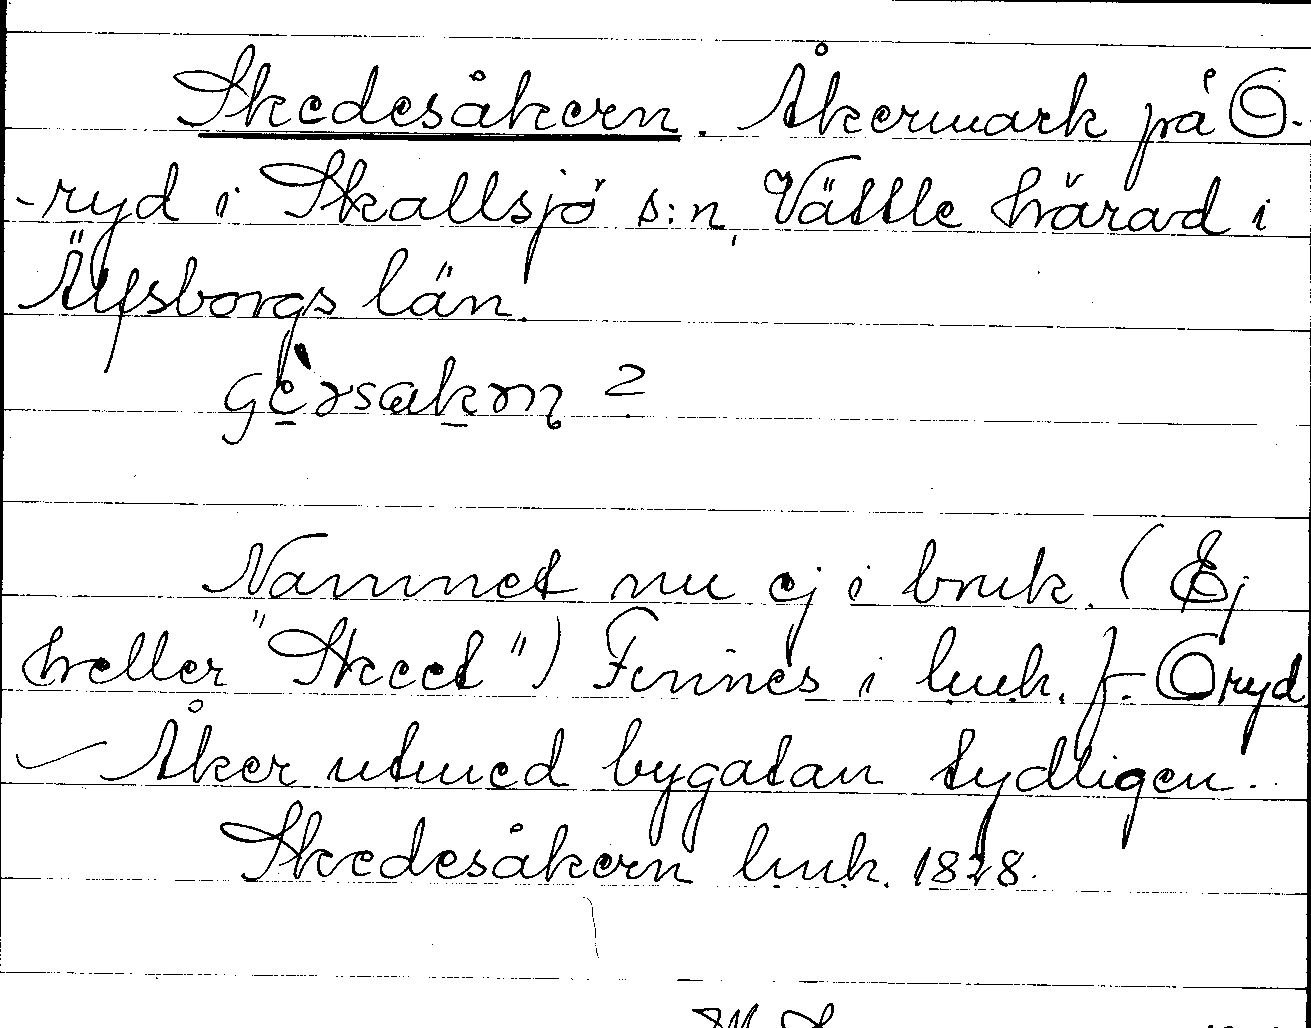 Skedesåkern. Åkermark på O-
-ryd i Skallsjö s:n, Vättle härad i
Älfsborgs län.
Namnet nu ej i bruk. (Ej
heller "Skeet") Finnes i lmh. f. Oryd
Åker utmed bygatan tydligen.
Skedesåkern lmh. 1828.